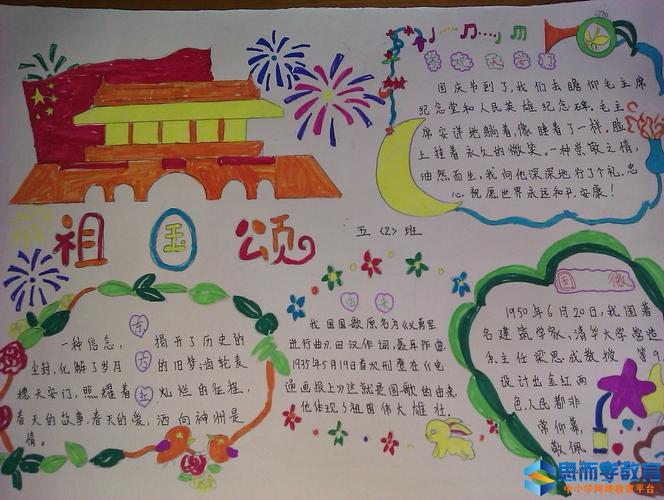 天安门
国庆节到了,我们去瞻仰毛主席
纪念堂和人民英雄纪念碑。毛主
席安详地躺着,像睡着了一样,脸
上挂着永久的微笑。一种崇敬之情,
油然而生,我向他深深地行了个礼。忠
心祝愿世界永远和平.安康!
祖国颂
五〈2〉班
东方红
一种信念, 揭开了历史的
尘封,化解了岁月 的旧梦;齿轮表
穗天安门,照耀着 灿烂的征程,
春天的故事,春天的爱,洒向神州是
情。
由来
我国国歌原名为《义勇军
进行曲》.田汉作词,聂耳作曲.
1935年5月19日首次刊登在《电
通画报上》这就是国歌的由来,
他体现了祖国伟大雄壮.
国徽
1950年6月20日,我国著
名建筑学家、清华大学营造
系主任梁思成教授 第9
设计出金红两
色,人民都非
常仰慕,
敬佩
思而学教育
中小学网络教育平台